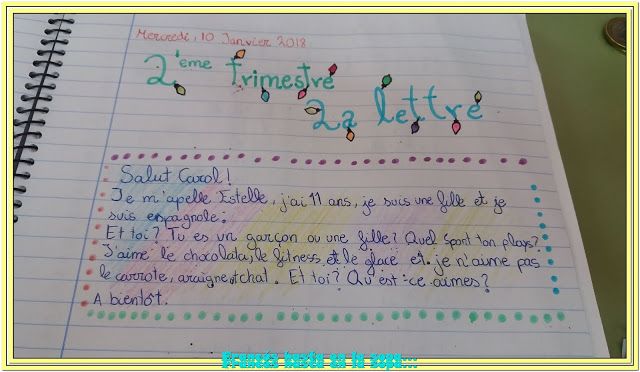 Mercredi, 10 Janvier 2018
2ème trimestre
La lettre
Salut Carol!
Je m'apelle Estelle, j'ai 11 ans, je suis une fille et je
suis espagnole.
Et toi? Tu es un garçon ou une fille? Quel sont ton plays?
J'aime le chocolata, le fitness et le glace et je n'aime pas
le carrote, araigne, tchat. Et toi? Qu'est-ce aimes?
A bientôt.
Francés hasta en la sopa...